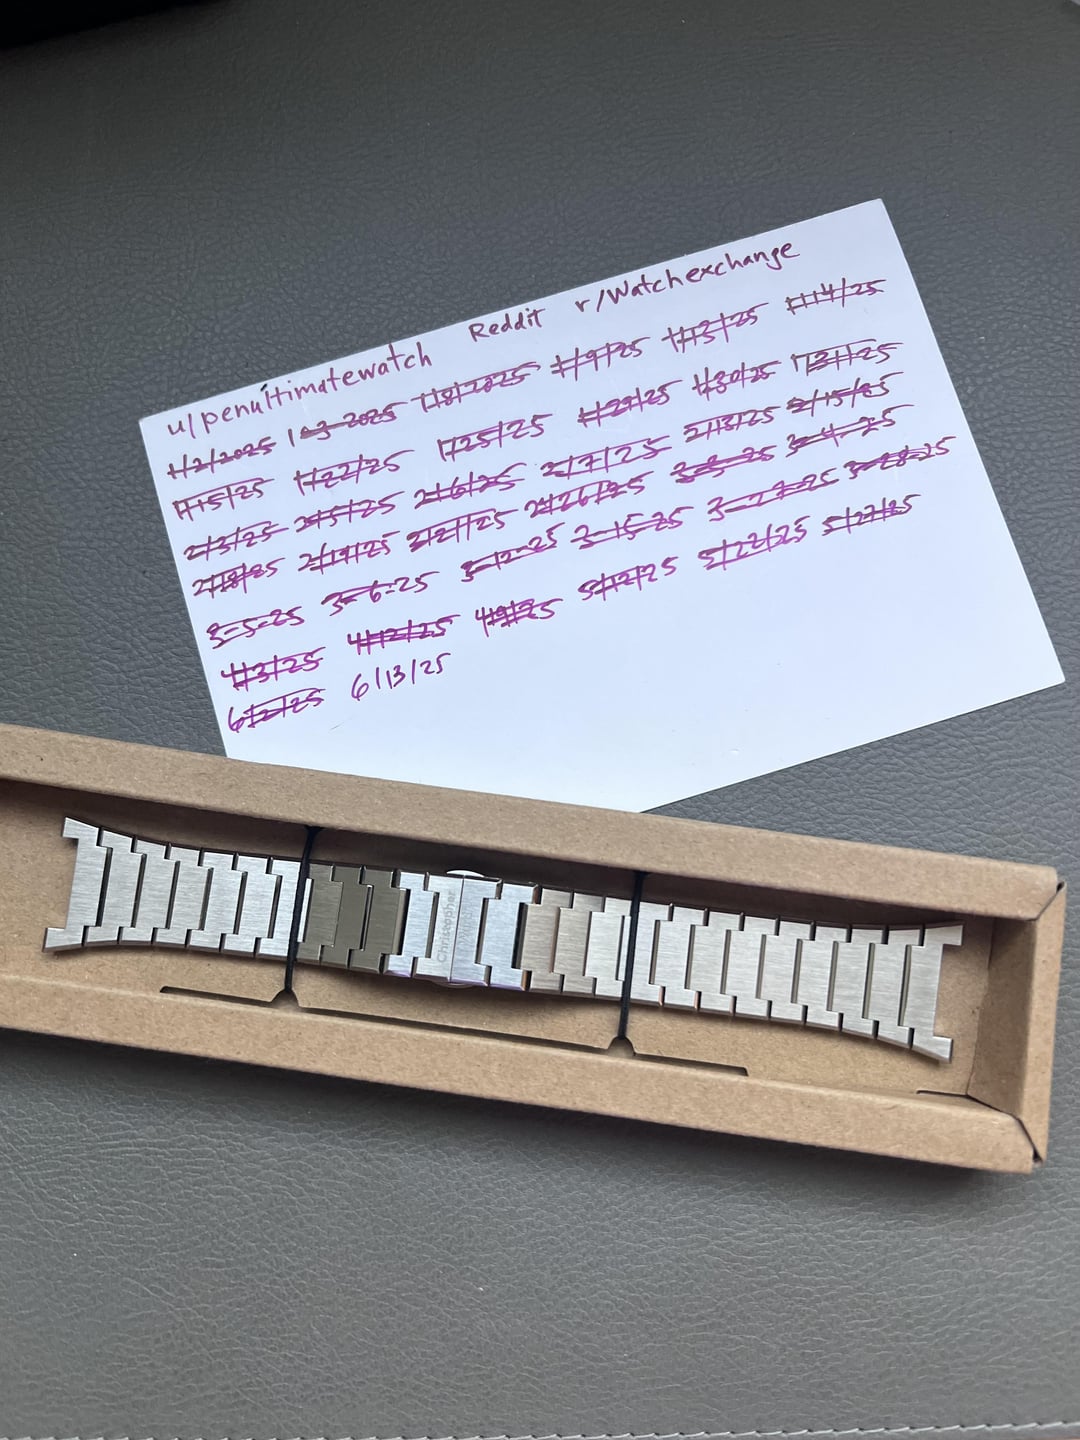 u/penultimatewatch Reddit r/Watchexchange
1/2/2025 1-3-2025 1/8/2025 1/9/25 1/13/25 1/14/25
1/15/25 1/22/25 1/25/25 1/29/25 1/30/25 1/31/25
2/3/25 2/5/25 2/6/25 2/7/25 2/13/25 2/15/25
2/18/25 2/19/25 2/21/25 2/26/25 3-3-25 3-4-25
3-5-25 3-6-25 3-12-25 3-15-25 3-27-25 3-28-25
4/3/25 4/12/25 5/12/25 5/22/25 5/27/25
6/2/25 6/13/25
Christopher